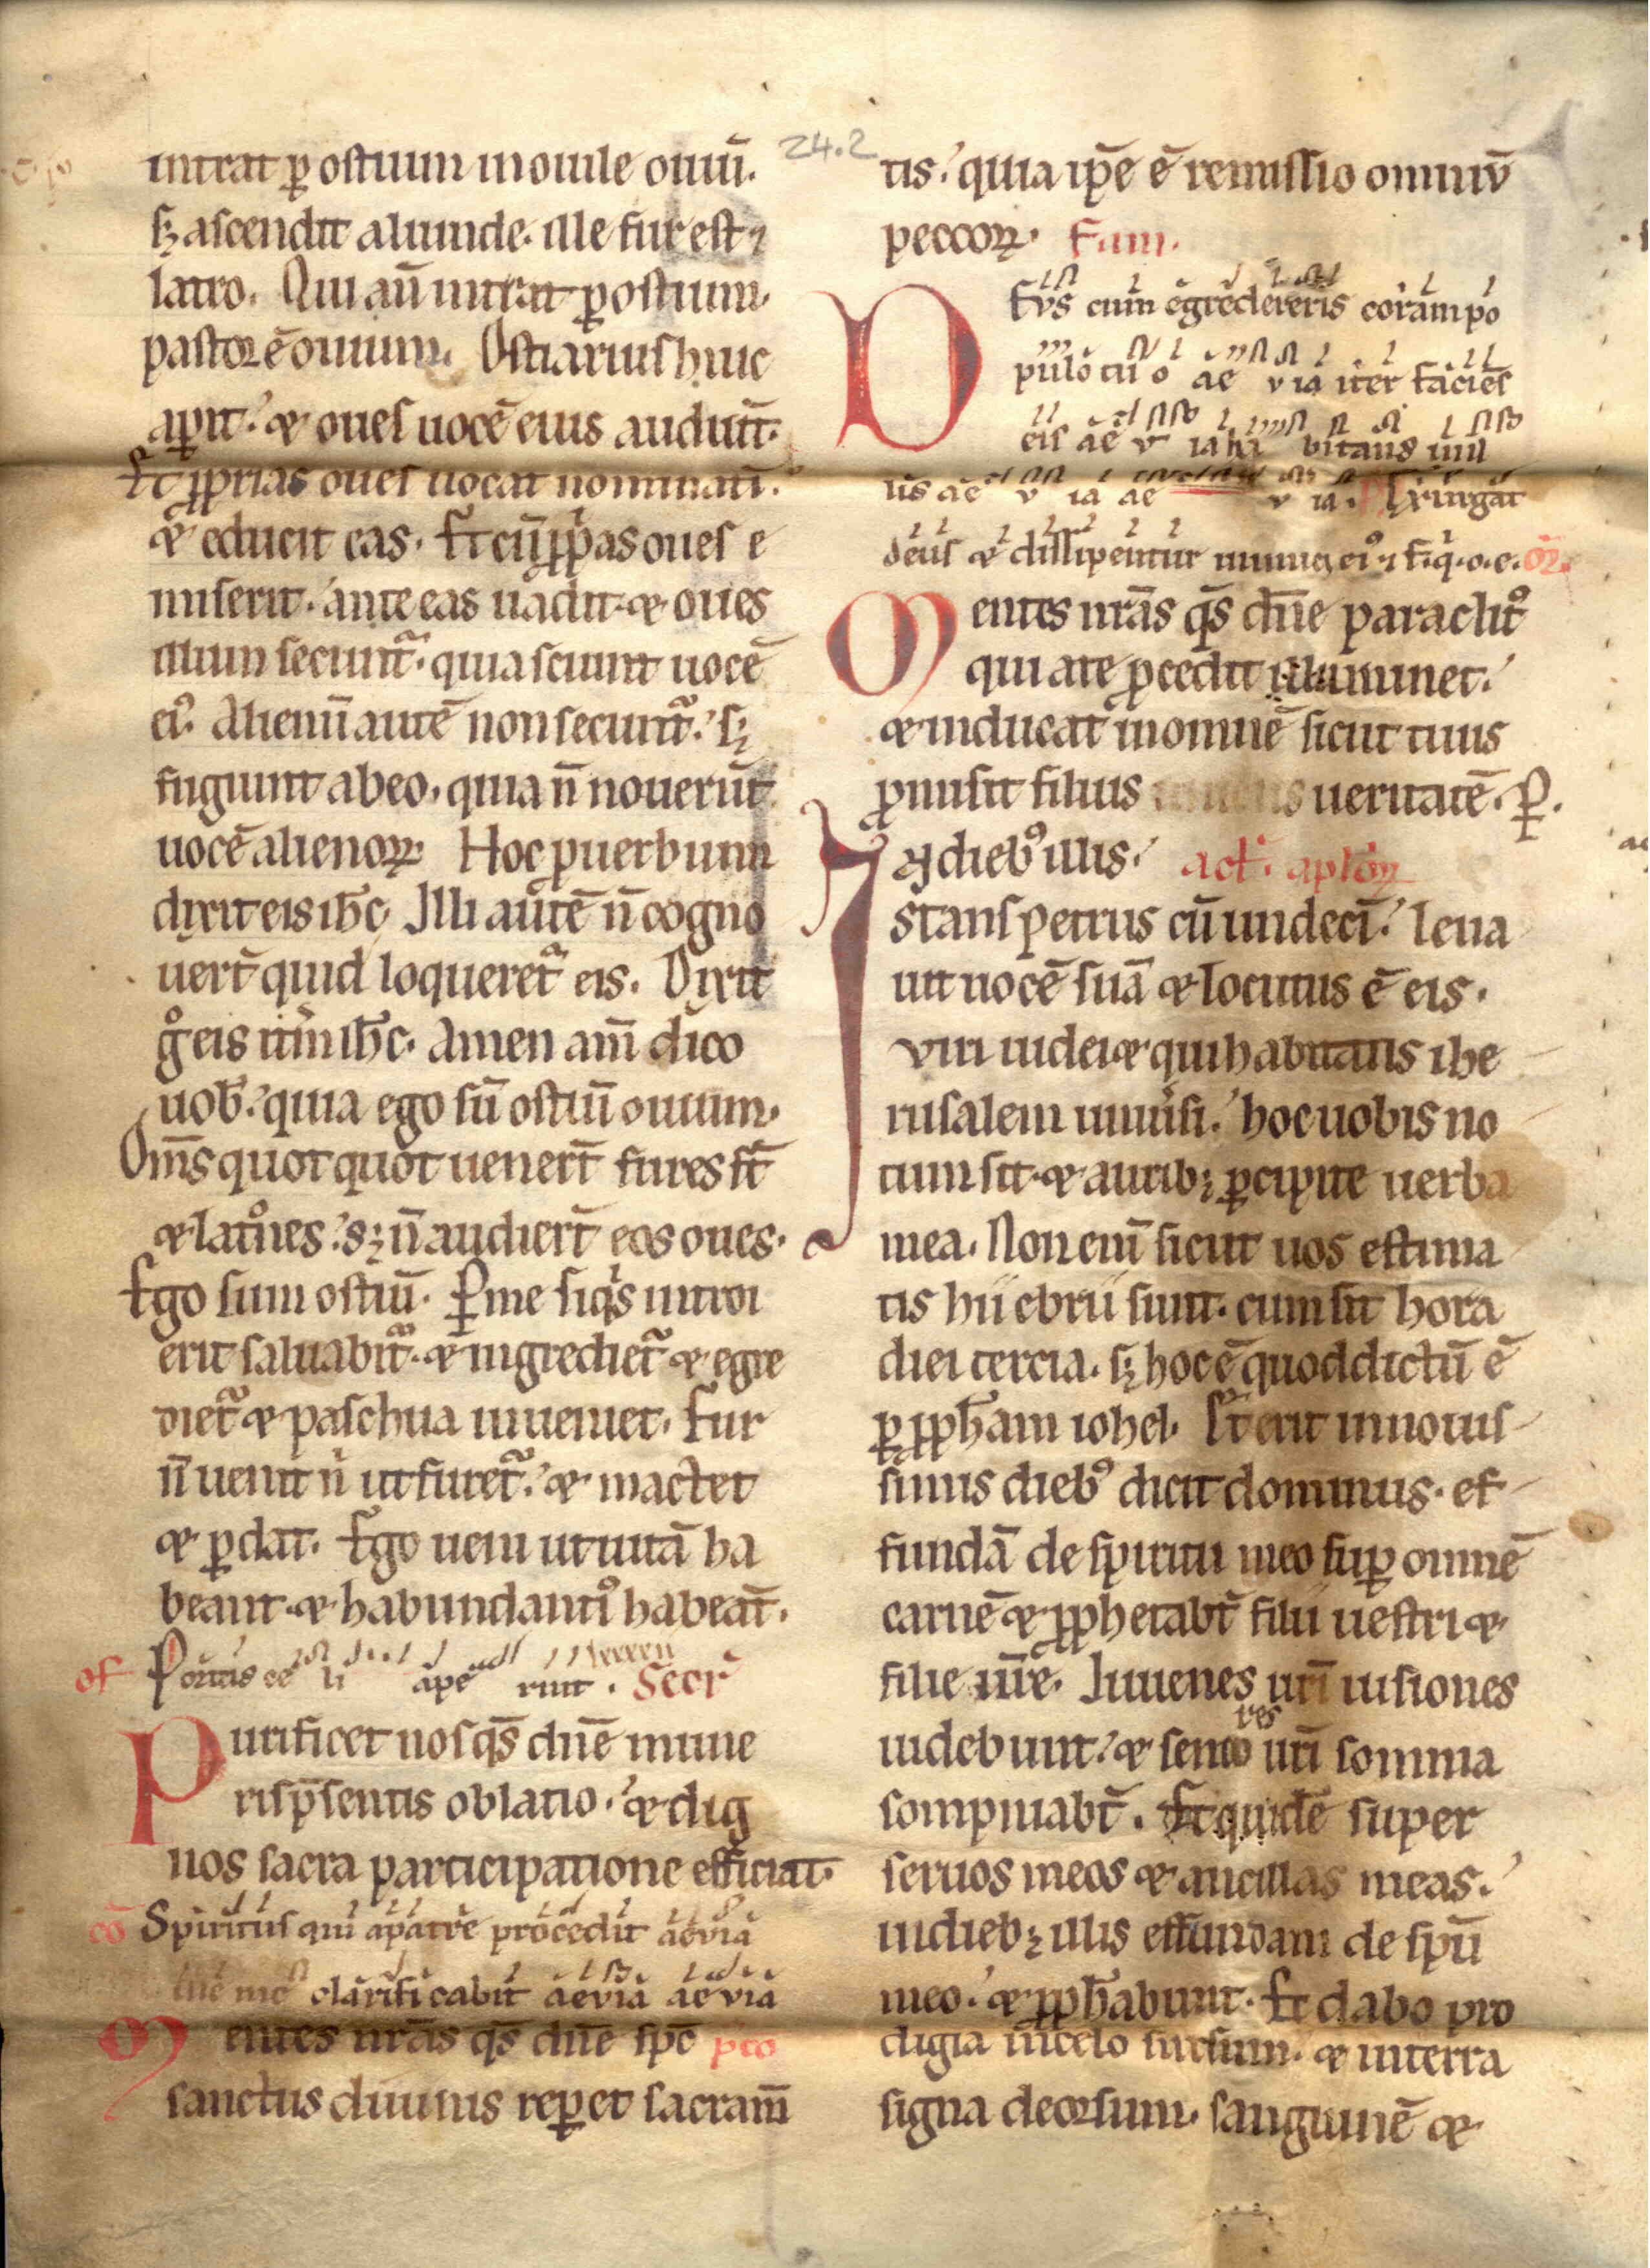 intrat ꝑ ostium in ouile ouiū.
sꝫ ascendit aliunde. ille fur est ⁊
latro. Qui aū intrat ꝑ ostium.
pastor ē ouium. Ostiarius huic
aꝑit. & oues uocē eius audiūt.
Et ꝓprias oues uocat nominatī.
& educit eas. Et cū ꝓpͥas oues e
miserit. ante eas uadit. & oues
illum secuntᷓ. quia sciunt uocē
eiꝰ. Alienū autē non secuntᷓ. sꝫ
fugiunt ab eo. quia n̄ nouerūt
uocē alienoꝝ. Hoc ꝓuerbium
dixit eis ihc̄. Illi autē n̄ cogno
uert̄ quid loqueretᷓ eis. Dixit
gͦ eis itm̄ ihc̄. Amen am̄ dico
uob̄. quia ego sū ostiū ouium.
Om̄s quotquot uenert̄ fures st̄
& latͦnes. sꝫ n̄ audiert̄ eos oues.
Ego sum ostiū. Ꝑ me siqͥs introi
erit saluabitᷓ. & ingredietᷓ & egre
dietᷓ & paschua inueniet. Fur
n̄ uenit nͥ ut furetᷓ. & mactet
& ꝑdat. Ego ueni ut uitā ha
beant. & habundantiꝰ habeāt.
of Portas ce li ape ruit. Secr̄
Purificet nos qs̄ dn̄e mune
ris p̄sentis oblatio. & dig
nos sacra participatione efficiat.
cō Spiritus qui a patre procedit aeuia
ille me clarificabit aeuia aeuia
Mentes nr̄as qs̄ dn̄e spc̄ pco
sanctus diuinis reꝑet sacram̄
24.2
tis. quia ip̄e ē remissio omniū
peccoꝝ. Fām.
DEVS cum egredereris coram po
pulo tuo ae v ia iter faciēs
eis ae v ia ha bitans in il
lis ae v ia ae v ia. Ps̄ Exurgat
deus & dissipentur inimici eiꝰ ⁊ f. q. o. e. oꝝ.
Mentes nr̄as qs̄ dn̄e paraclitꝰ
qui a te ꝓcedit illuminet.
& inducat in omnē sicut tuus
ꝓmisit filius ueritatē. Ꝑ.
IN diebꝰ illis. act. aploꝝ
stans petrus cū undecī. leua
uit uocē suā & locutus ē eis.
Viri iudei & qui habitatis ihe
rusalem uniuͥsi. hoc uobis no
tum sit. & auribꝫ ꝑcipite uerba
mea. Non enī sicut uos estima
tis hii ebrii sunt. cum sit hora
diei tercia. sꝫ hoc ē quod dictū ē
ꝑ ꝓph̄am iohel. Et erit in nouis
simis diebꝰ dicit dominus. ef
fundā de spiritu meo suꝑ omnē
carnē & ꝓphetabt̄ filii uestri &
filie ur̄e. Iuuenes urī uisiones
uidebunt. & senio res urī somnia
sompniabt̄. Et quidē super
seruos meos & ancillas meas.
in diebꝫ illis effundam de spū
meo. & ꝓph̄abunt. Et dabo pro
digia in celo sursum. & in terra
signa deorsum. sanguinē &